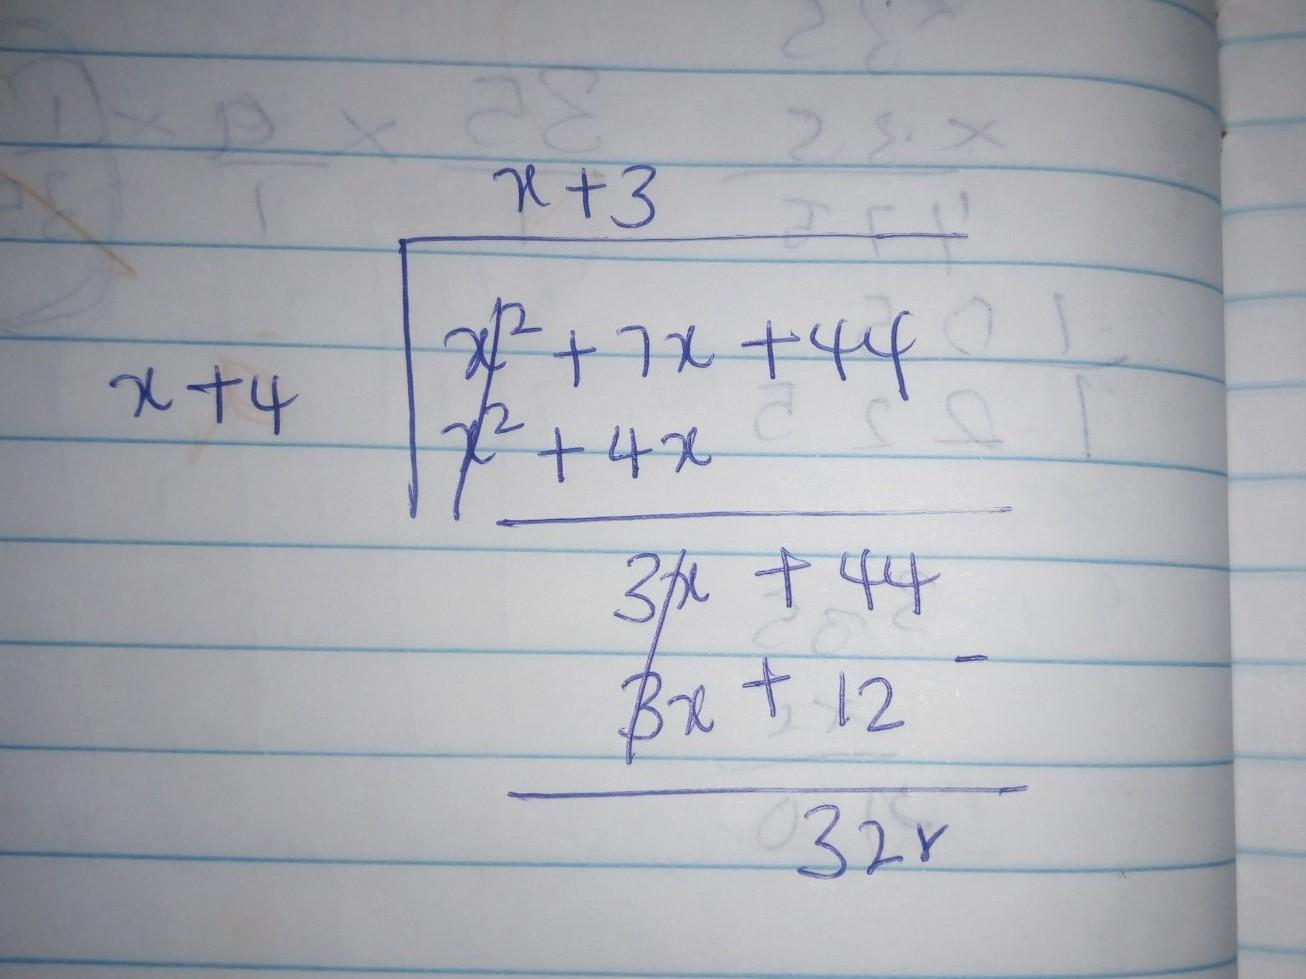 x+3
x² + 7x + 44
x+4
x² + 4x
3x + 44
-
3x + 12
32r